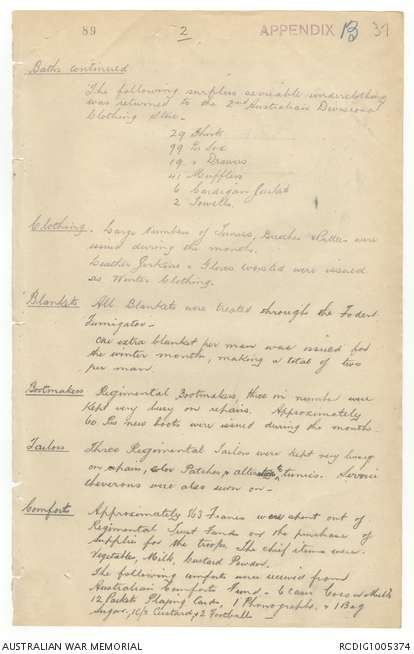 89
2
APPENDIX 13 37
Baths continued
The following surplus serviceable underclothing
was returned to the 2nd Australian Divisional
Clothing Store -
29 Shirts
99 Prs Sox
19 " Drawers
41 Mufflers
6 Cardigan Jackets
2 Towells
Clothing - Large numbers of Tunics, Breeches & Puttees were
issued during the month.
Leather Jerkins & Gloves worsted were issued
as Winter Clothing.
Blankets All Blankets were treated through the Foden
Fumigator -
One extra blanket per man was issued for
the winter months, making a total of two
per man.
Bootmakers Regimental Bootmakers, three in number were
kept very busy on repairs. Approximately
60 Prs new boots were issued during the month -
Tailors Three Regimental Tailors were kept very busy
on repair, color Patches, & alterations to tunics. Service
cheverons were also sewn on -
Comforts Approximately 563 Francs were spent out of
Regimental Trust Funds on the purchase of
Supplies for the troops. The chief items were
Vegetables, Milk, Custard Powder.
The following comforts were received from
Australian Comforts Fund - 6 cases Cocoa & Milk
12 Packets Playing Cards, 1 Phonographs, & 1 Bag
Sugar, Custard & 2 Football
AUSTRALIAN WAR MEMORIAL
RCDIG1005374